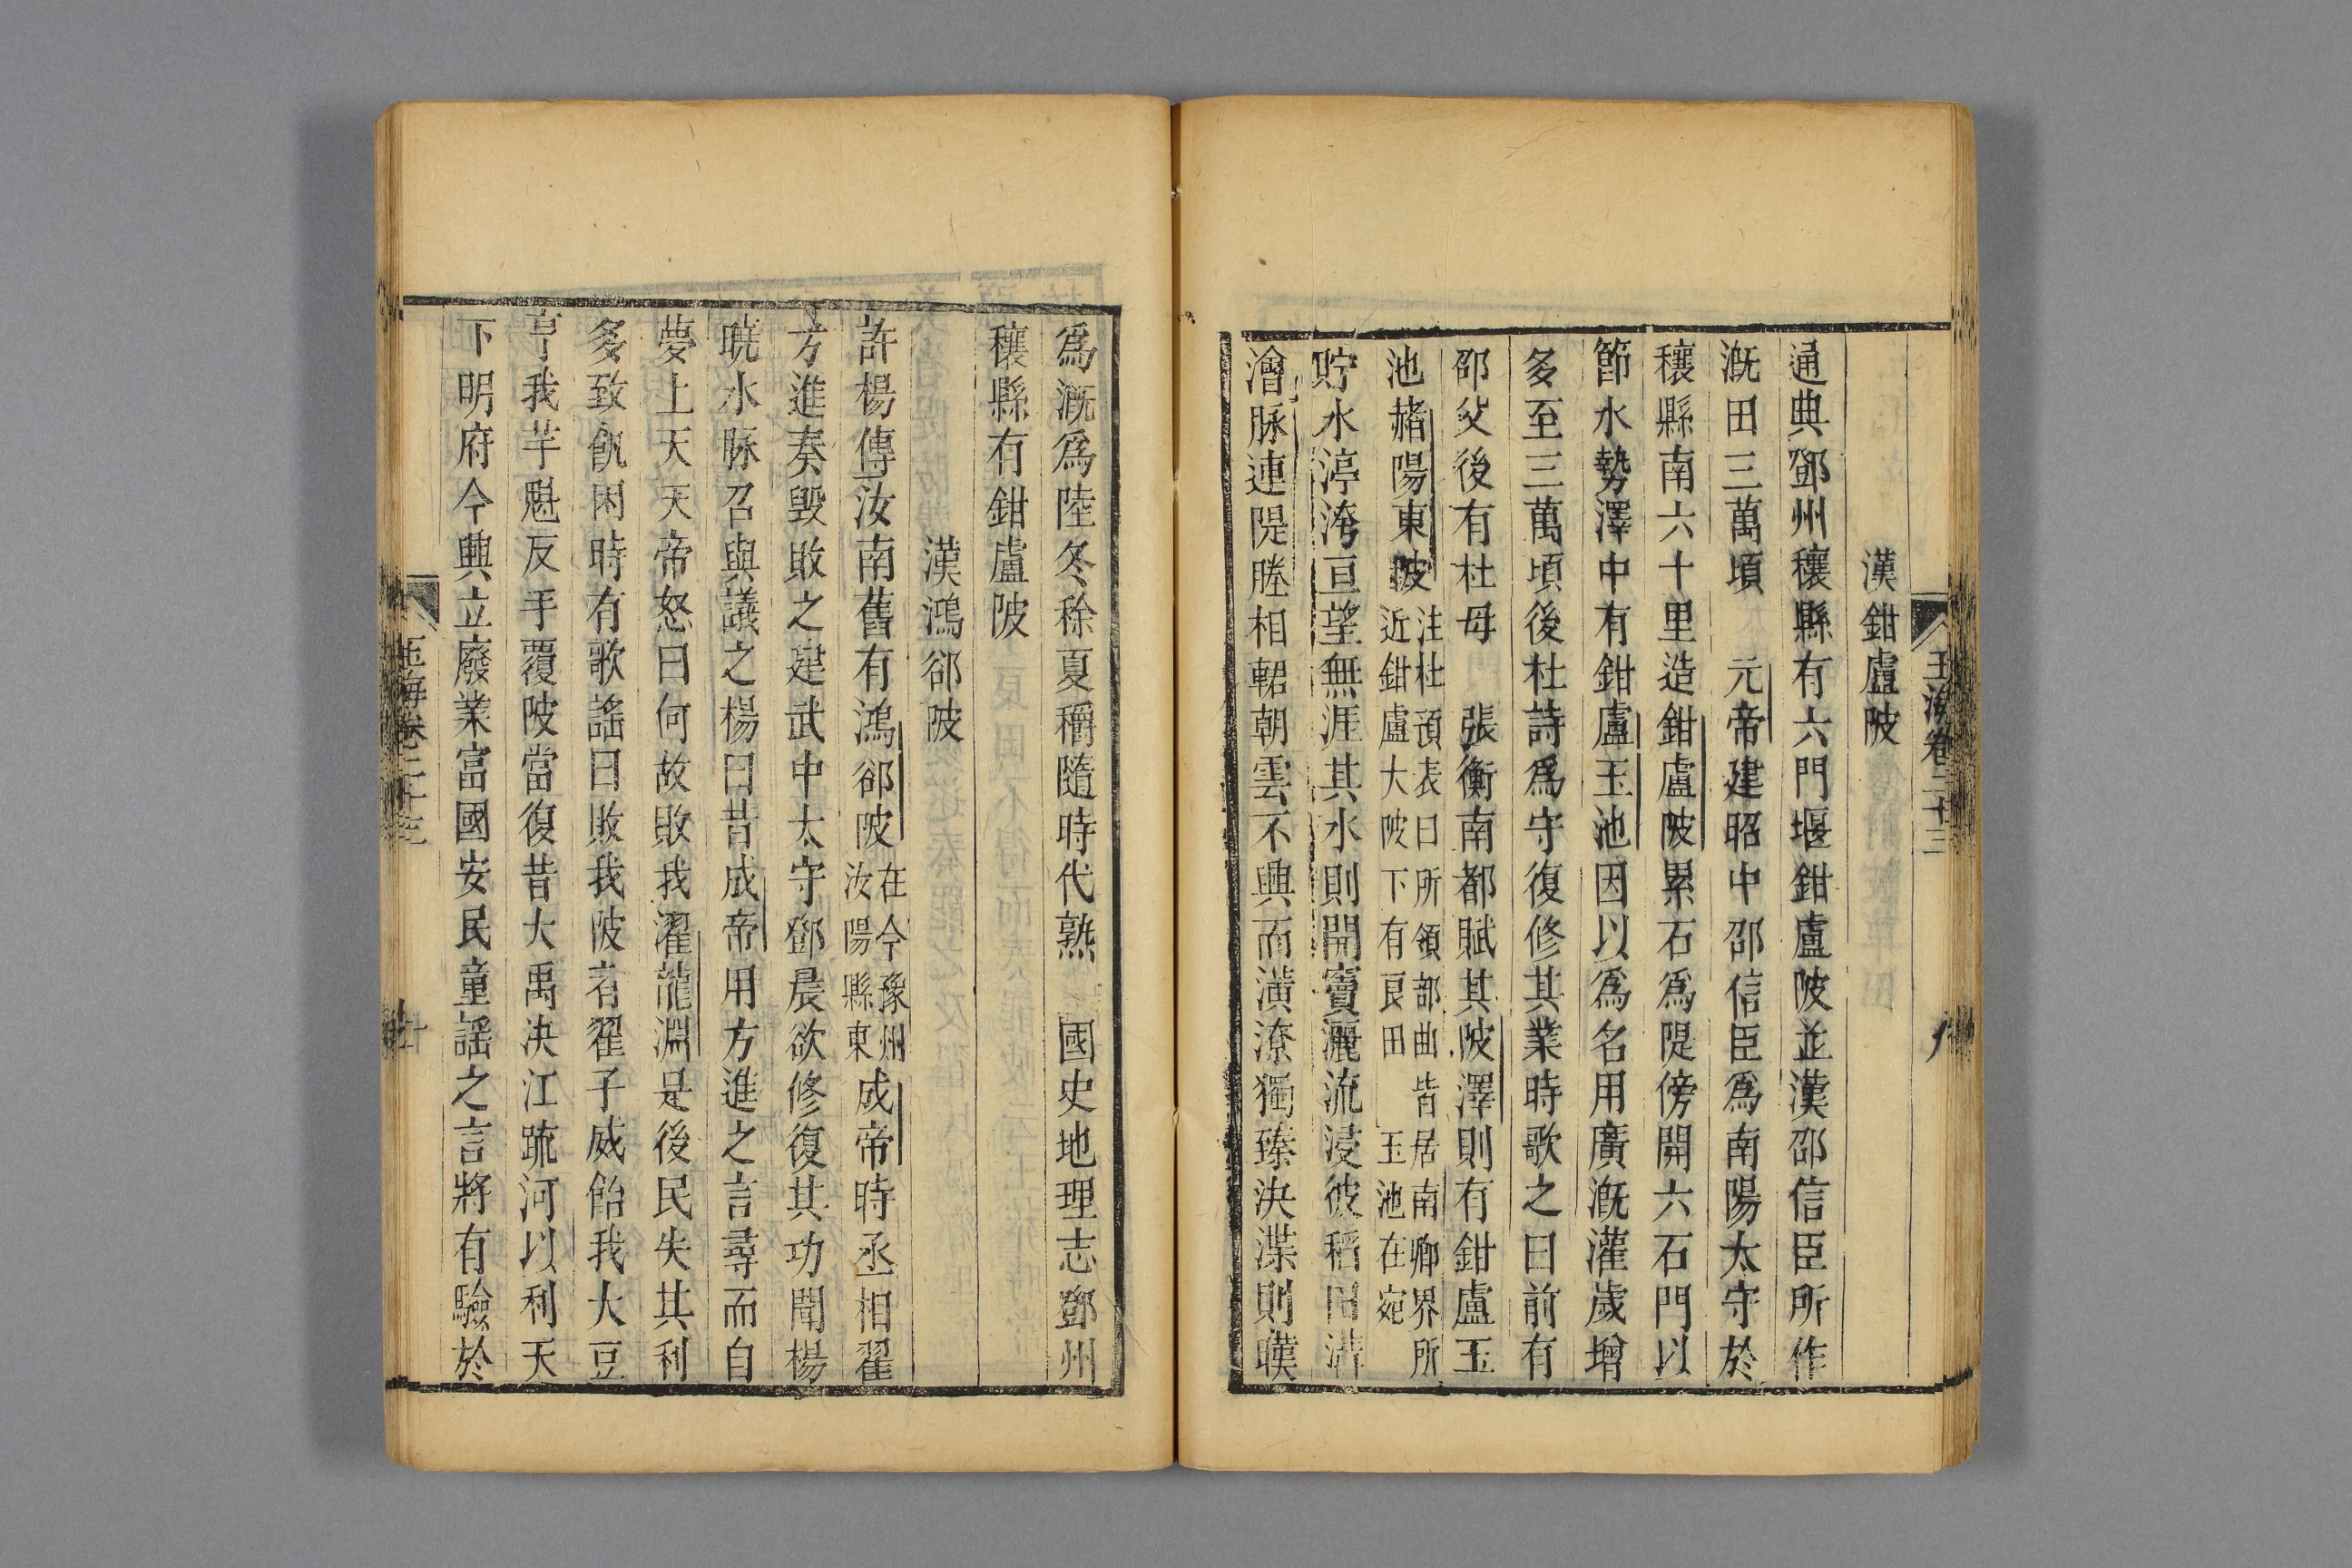 玉海卷二十三
漢鉗盧陂
通典鄧州穰縣有六門堰鉗盧陂並漢邵信臣所作
漑田三萬頃 元帝建昭中邵信臣爲南陽太守於
穰縣南六十里造鉗盧陂累石爲隄傍開六石門以
節水勢澤中有鉗盧玉池因以爲名用廣漑灌歲增
多至三萬頃後杜詩爲守復修其業時歌之曰前有
邵父後有杜母 張衡南都賦其陂澤則有鉗盧玉
池赭陽東陂注杜預表曰所領部曲皆居南鄕界所
近鉗盧大陂下有良田 玉池在宛
貯水渟洿亘望無涯其水則開竇灑流浸彼稻田溝
澮脉連隄塍相輑朝雲不興而潢潦獨臻決渫則暵
爲漑爲陸冬稌夏穱隨時代熟 國史地理志鄧州
穰縣有鉗盧陂
漢鴻郤陂
許楊傳汝南舊有鴻郤陂在今豫州
汝陽縣東成帝時丞相翟
方進奏毀敗之建武中太守鄧晨欲修復其功聞楊
曉水脉召與議之楊曰昔成帝用方進之言尋而自
夢上天天帝怒曰何故敗我濯龍淵是後民失其利
多致飢困時有歌謠曰敗我陂者翟子威飴我大豆
亨我芋魁反乎覆陂當復昔大禹決江疏河以利天
下明府今興立廢業富國安民童謠之言將有驗於
玉海卷二十三